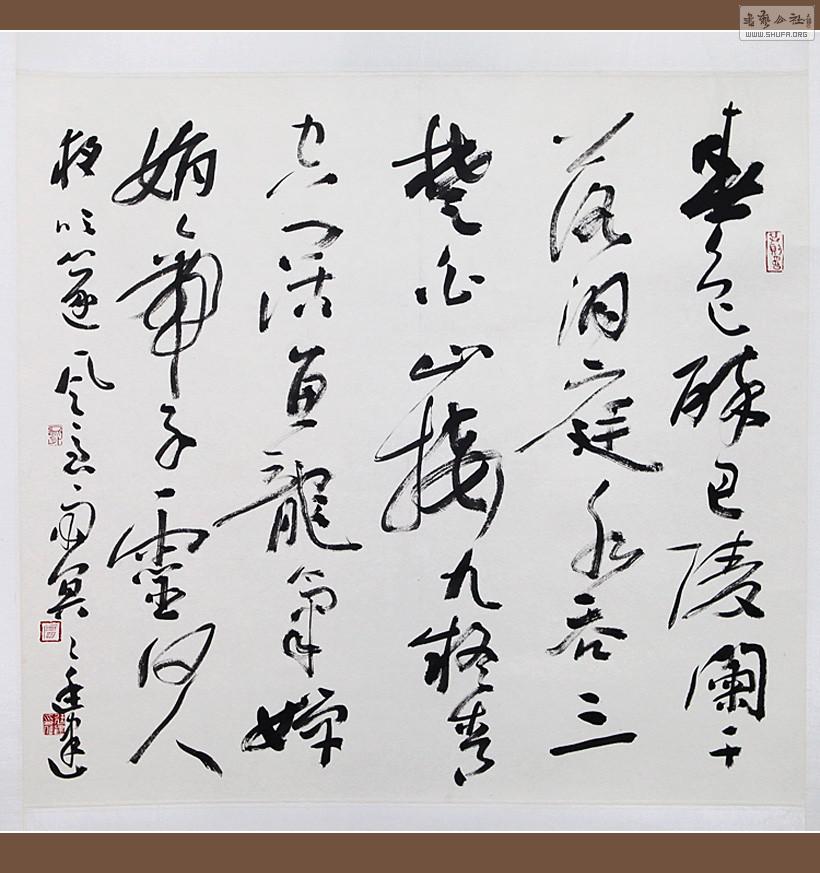 書藝公社
WWW.SHUFA.ORG
春色醉巴陵闌干
落洞庭水吞三
楚白山接九疑青
空闊魚龍氣嬋
娟帝子靈何人
夜吹篴風急雨冥〻